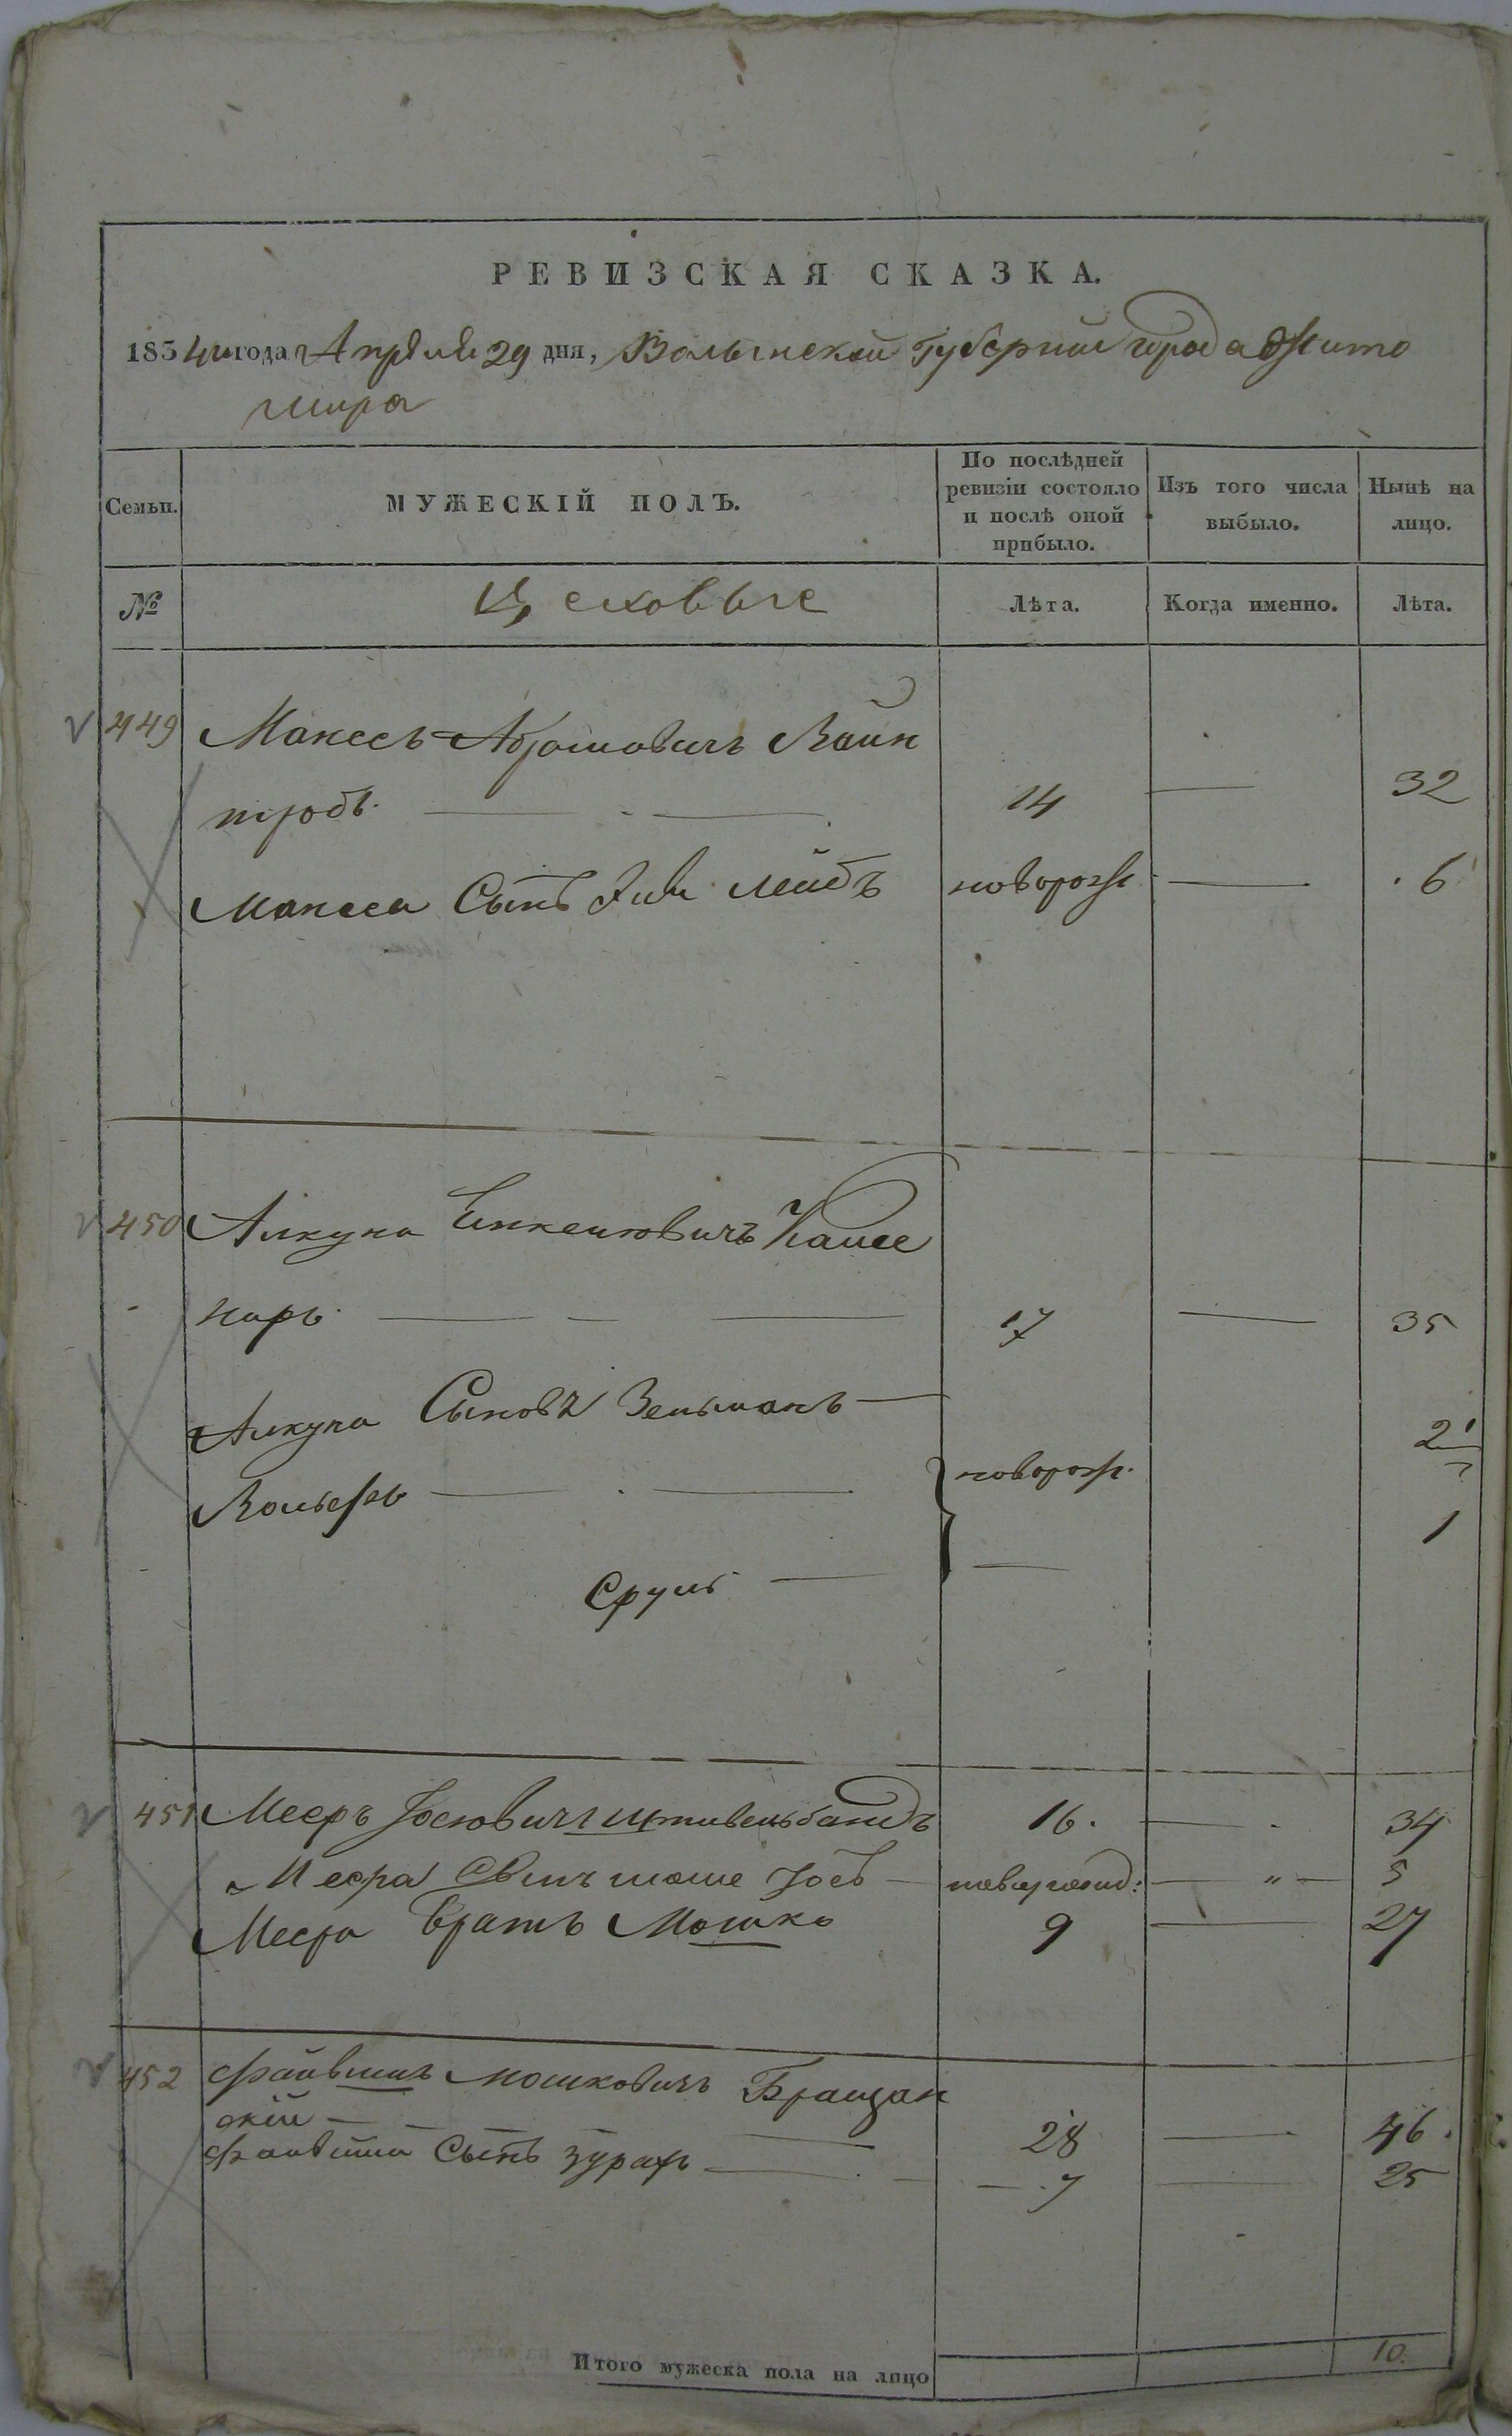 РЕВИЗСКАЯ СКАЗКА.
1834 года Апреля 29 дня, Волынской Губернии города Жито
мира
Семьи. МУЖЕСКІЙ ПОЛЪ. По послѣдней ревизіи состояло и послѣ оной прибыло. Изъ того числа выбыло. Нынѣ на лицо.
№ Цеховые Лѣта. Когда именно. Лѣта.
449 Манесъ Абрамовичъ Вайн
тробъ. 14 — 32
Манеса Сынъ Эли Лейбъ новорож — 6
450 Янкель
наръ 17 — 35
Сыновья Зельманъ — 2
Вольфъ — новорож. 1
Сруль —
451 Мееръ Іосіовичъ Штивельбандъ 16. — 34
Меера Сынъ Іосъ — новорожд: — " — 5
Меера Братъ Мошко 9 — 27
452 Файвишъ Мошковичъ Бранзан
скій — 28 — 46.
Файвиша Сынъ Зурахъ — 7 — 25
Итого мужеска пола на лицо 10.